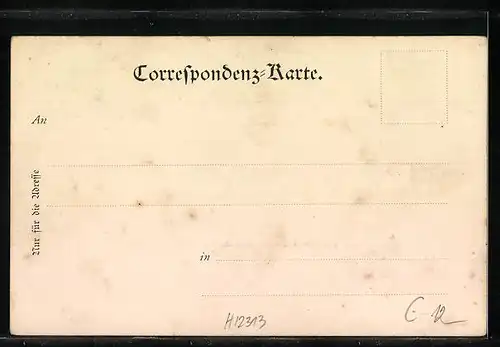 Correspondenz-Karte.
An
Nur für die Adresse
in
H12313
C-12